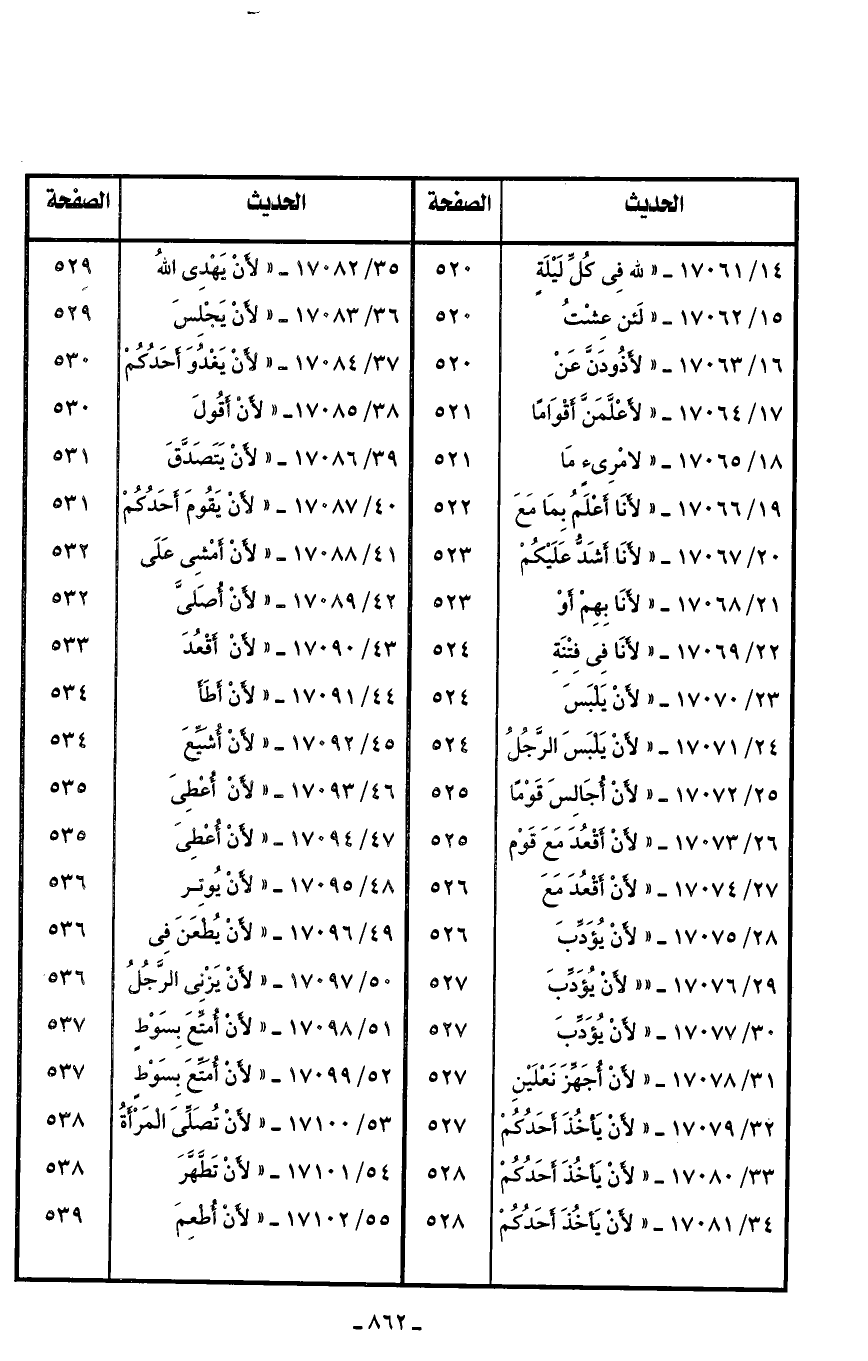 الحديث | الصفحة | الحديث | الصفحة
١٧٠٦١/١٤ ـ « لله فى كُلِّ لَيْلَةٍ | ٥٢٠ | ١٧٠٨٢/٣٥ ـ « لأَنْ يَهْدِى اللهُ | ٥٢٩
١٧٠٦٢/١٥ ـ « لَئن عِشْتُ | ٥٢٠ | ١٧٠٨٣/٣٦ ـ « لأَنْ يَجْلِسَ | ٥٢٩
١٧٠٦٣/١٦ ـ « لأَذُودَنَّ عَنْ | ٥٢٠ | ١٧٠٨٤/٣٧ ـ « لأَنْ يَغْدُوَ أَحَدُكُمْ | ٥٣٠
١٧٠٦٤/١٧ ـ « لأَعْلَمَنَّ أَقْوَامًا | ٥٢١ | ١٧٠٨٥/٣٨ـ « لأَنْ أَقُولَ | ٥٣٠
١٧٠٦٥/١٨ ـ « لامْرِىءٍ مَا | ٥٢١ | ١٧٠٨٦/٣٩ ـ « لأَنْ يَتَصَدَّقَ | ٥٣١
١٧٠٦٦/١٩ ـ « لأَنَا أَعْلَمُ بِمَا مَعَ | ٥٢٢ | ١٧٠٨٧/٤٠ ـ « لأَنْ يَقُومَ أَحَدُكُمْ | ٥٣١
١٧٠٦٧/٢٠ ـ « لأَنَا أَشَدُّ عَلَيْكُمْ | ٥٢٣ | ١٧٠٨٨/٤١ ـ « لأَنْ أَمْشِى عَلَى | ٥٣٢
١٧٠٦٨/٢١ ـ « لأَنَا بِهِمْ أَوْ | ٥٢٣ | ١٧٠٨٩/٤٢ ـ « لأَنْ أُصَلِّىَ | ٥٣٢
١٧٠٦٩/٢٢ ـ « لأَنَا فِى فِتْنَةِ | ٥٢٤ | ١٧٠٩٠/٤٣ ـ « لأَنْ أَقْعُدَ | ٥٣٣
١٧٠٧٠/٢٣ ـ « لأَنْ يَلْبَسَ | ٥٢٤ | ١٧٠٩١/٤٤ ـ « لأَنْ أَطَأَ | ٥٣٤
١٧٠٧١/٢٤ ـ « لأَنْ يَلْبَسَ الرَّجُلُ | ٥٢٤ | ١٧٠٩٢/٤٥ ـ « لأَنْ أُشَيِّعَ | ٥٣٤
١٧٠٧٢/٢٥ ـ « لأَنْ أُجَالِسَ قَوْمًا | ٥٢٥ | ١٧٠٩٣/٤٦ ـ « لأَنْ أُعْطِىَ | ٥٣٥
١٧٠٧٣/٢٦ ـ « لأَنْ أَقْعُدَ مَعَ قَوْمٍ | ٥٢٥ | ١٧٠٩٤/٤٧ ـ « لأَنْ أُعْطِىَ | ٥٣٥
١٧٠٧٤/٢٧ ـ « لأَنْ أَقْعُدَ مَعَ | ٥٢٦ | ١٧٠٩٥/٤٨ ـ « لأَنْ يُوتِر | ٥٣٦
١٧٠٧٥/٢٨ ـ « لأَنْ يُؤَدِّبَ | ٥٢٦ | ١٧٠٩٦/٤٩ ـ « لأَنْ يُطْعَنَ فِى | ٥٣٦
١٧٠٧٦/٢٩ ـ «« لأَنْ يُؤَدِّبَ | ٥٢٧ | ١٧٠٩٧/٥٠ ـ « لأَنْ يَزْنِى الرَّجُلُ | ٥٣٦
١٧٠٧٧/٣٠ ـ « لأَنْ يُؤَدِّبَ | ٥٢٧ | ١٧٠٩٨/٥١ ـ « لأَنْ أُمَتِّعَ بِسَوْطٍ | ٥٣٧
١٧٠٧٨/٣١ ـ « لأَنْ أُجَهِّزَ نَعْلَيْنِ | ٥٢٧ | ١٧٠٩٩/٥٢ ـ « لأَنْ أُمَتِّعَ بِسَوْطٍ | ٥٣٧
١٧٠٧٩/٣٢ ـ « لأَنْ يَأخُذَ أَحَدُكُمْ | ٥٢٧ | ١٧١٠٠/٥٣ ـ « لأَنْ تُصَلِّىَ الْمَرْأَةُ | ٥٣٨
١٧٠٨٠/٣٣ ـ « لأَنْ يَأخُذَ أَحَدُكُمْ | ٥٢٨ | ١٧١٠١/٥٤ ـ « لأَنْ تَطَهَّرَ | ٥٣٨
١٧٠٨١/٣٤ ـ « لأَنْ يَأخُذَ أَحَدُكُمْ | ٥٢٨ | ١٧١٠٢/٥٥ ـ « لأَنْ أُطْعِمَ | ٥٣٩
ـ ٨٦٢ ـ